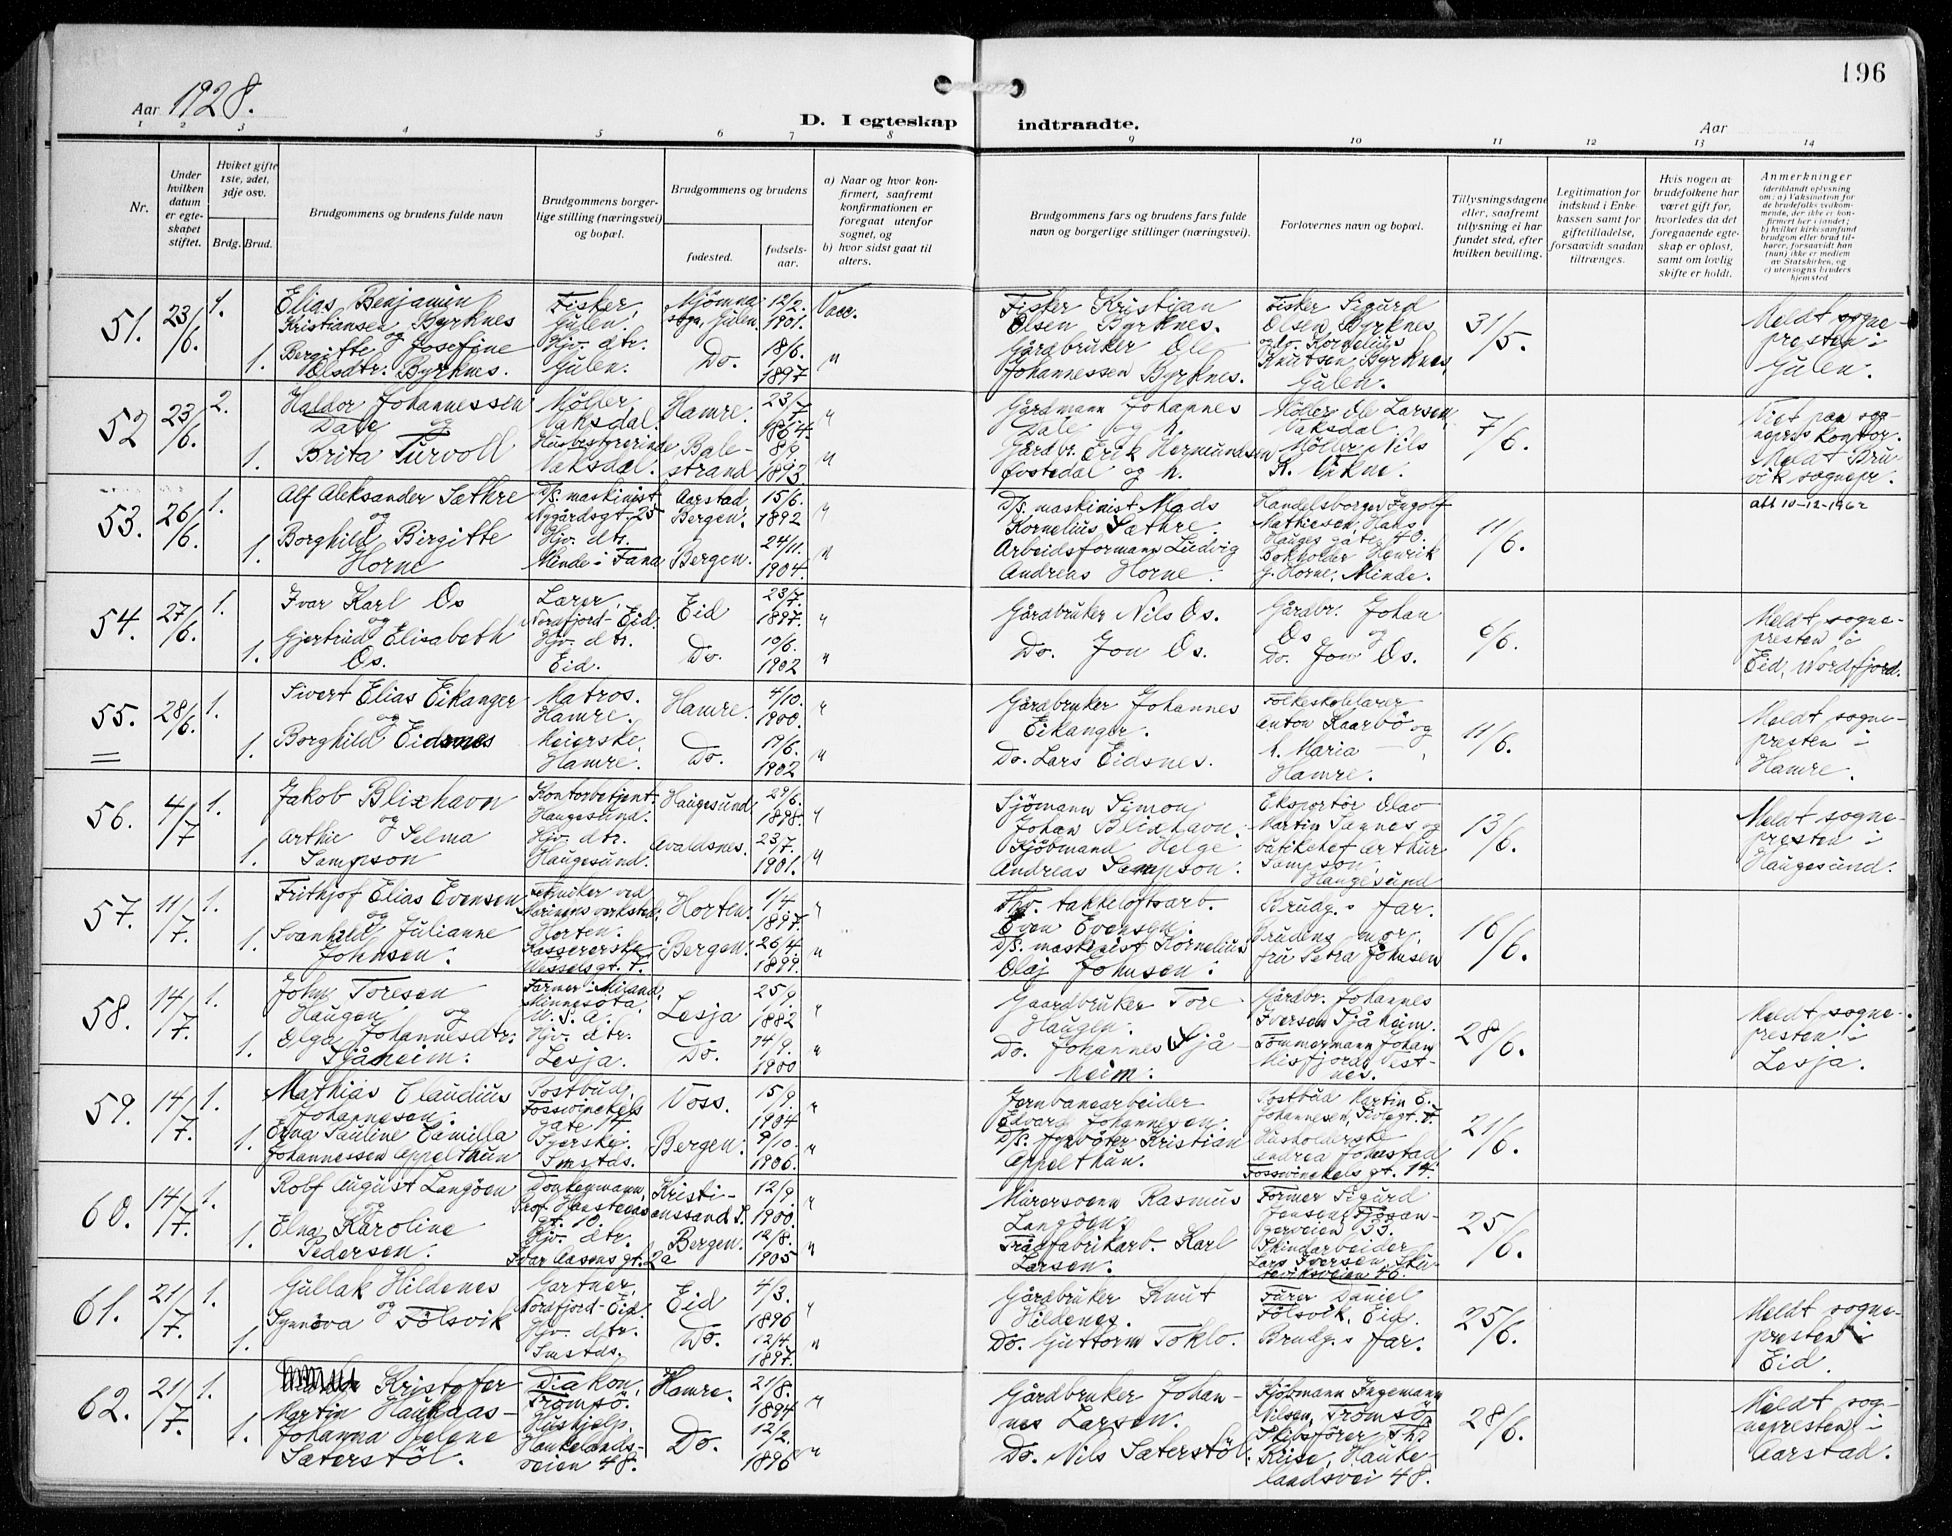 196
Aar 1928.
D. I egteskap indtraadte.
Aar
1 2 3 4 5 6 7 8 9 10 11 12 13 14
Nr.
Under hvilken datum er egteskapet stiftet.
Hviket gifte 1ste, 2det, 3dje osv.
Brdg. Brud.
Brudgommens og brudens fulde navn
Brudgommens borgerlige stilling (næringsvei) og bopæl.
Brudgommens og brudens
fødested.
fødselsaar.
a) Naar og hvor konfirmert, saafremt konfirmationen er foregaat utenfor sognet, og
b) hvor sidst gaat til alters.
Brudgommens fars og brudens fars fulde navn og borgerlige stillinger (næringsvei).
Forlovernes navn og bopæl.
Tillysningsdagene eller, saafremt tillysning ei har fundet sted, efter hvilken bevilling.
Legitimation for indskud i Enkekassen samt for giftetilladelse, forsaavidt saadan tiltrænges.
Hvis nogen av brudefolkene har været gift før, hvorledes da det foregaaende egteskap er opløst, samt om lovlig skifte er holdt.
Anmerkninger (deriblandt oplysning om: a) Vaksination for de brudefolks vedkommende, der ikke er konfirmert her i landet; b) hvilket kirkesamfund brudgom eller brud tilhører, forsaavidt han (hun) ikke er medlem av Statskirken, og c) utensogns bruders hjemsted
51. 23/6. 1. Elias Benjamin Kristiansen Byrknes og Fisker, Gulen. Mjømna sogn, Gulen. 12/2. 1901. Vacc. Fisker Kristian Olsen Byrknes. Fisker Sigurd Olsen Byrknes, 31/5. Meldt sognepresten i Gulen.
1. Bergitte Josefine Olsdtr. Byrknes. Hjv. dtr. Gulen. Do. 18/6. 1897 " Gårdbruker Ole Johannessen Byrknes. og Kornelius Knutsen Byrknes, Gulen.
52 23/6. 2. Haldor Johannessen Dale og Møller Vaksdal. Hamre. 23/7 1864. " Gårdmann Johannes Dale og h. Møller Ole Larsen, Vaksdal. 7/6. Viet paa sogneprs kontor. Meldt Bruvik sognepr.
1. Brita Turvoll Husbestyrerinde Vaksdal. Balestrand 8/9. 1893 " Gårdbr. Erik Hermundsen Fostedal og h. Møller Nils
53. 26/6. 1. Alf Aleksander Sæthre og D/s. maskinist Nygårdsgt. 25 Aarstad, Bergen. 15/6. 1892 " D/s. maskinist Mads Kornelius Sæthre. Handelsborger Ingolf Mathiesen, Hans Hauges gate 40. 11/6. att 10-12-1962
1. Borghild Birgitte Horne Hjv. dtr. Minde i Fana Bergen. 24/11. 1904. " Arbeidsformann Ludvig Andreas Horne. Bokholder Henrik G. Horne, Minde.
54. 27/6. 1. Ivar Karl Os og Lærer, Nordfjord-Eid. Eid 23/7. 1897. " Gårdbruker Nils Os. Gårdbr. Johan Os og 6/6. Meldt sognepresten i Eid, Nordfjord.
1. Gjertrud Elisabeth Os. Hjv. dtr. Eid. Do. 10/6. 1902 " Do. Jon Os. Do. Jon Os.
55. 28/6. 1. Sivert Elias Eikanger og Matros. Hamre. Hamre. 4/10. 1900. " Gårdbruker Johannes Eikanger. Folkeskolelærer Anton Kaarbø og 11/6. Meldt sognepresten i Hamre.
1. Borghild Eidsnes Meierske, Hamre. Do. 19/6. 1902 " Do. Lars Eidsnes. h. Maria — Hamre.
56. 4/7 1. Jakob Blixhavn og Kontorbetjent Haugesund. Haugesund. 29/6. 1898. " Sjömann Simon Johan Blixhavn. Eksportör Olav Martin Sannes og 13/6. Meldt sognepresten i Haugesund.
1. Arthie Selma Sampson Hjv. dtr. Haugesund. Avaldsnes. 23/7. 1901. " Kjöbmand Helge Andreas Sampson. Arthur Sampson, Haugesund
57. 11/7. 1. Frithjof Elias Evensen og Tekniker ved Marinens verksted, Horten. Horten. 1/4. 1897. " Fhv. takkeloftsarb. Even Evensen. Brudg.s far. 16/6.
1. Svanhild Julianne Johnsen. Kassererske Wesselsgt. 7. Bergen. 26/4. 1899. " D/s. maskinist Kornelius Olaj Johnsen. Brudens mor, fru Petra Johnsen
58. 14/7. 1. John Toresen Haugen og Farmer i Milan, Minnesota, U.S.A. Lesja 25/9. 1882 " Gaardbruker Tore Haugen. Gårdbr. Johannes Iversen Sjåheim. 28/6. Meldt sognepresten i Lesja.
1. Olga Johannesdtr. Sjåheim. Hjv. dtr. Lesja. Do. 14/9. 1900 " Do. Johannes Sjåheim. Tömmermann Johan Misfjord, Testnes.
59. 14/7. 1. Mathias Claudius Johannesen. Postbud, Fosswinckels gate 14. Voss. 15/9. 1904 " Jernbanearbeider Edvard Johannesen. Postbud Martin E. Johannesen, 21/6.
1. Erna Pauline Camilla Johannessen Appelthun Syerske, Smstds. Bergen. 9/10. 1906. " D/s. fyrböter Kristian Appelthun. Husholderske Andrea Johnstad Fosswinckels gt. 14.
60. 14/7. 1. Rolf August Langöen og Donkeymann, Prof. Hansteens gt. 10. Kristianssand S. 12/9. 1900. " Murersvenn Rasmus Langöen. Former Sigurd Jensen, Fjösangerveien 33. 25/6.
1. Elna Karoline Pedersen. Hjv. dtr. Ivar Aasens gt. 2a Bergen. 12/8. 1905 " Trådfabrikarb. Karl Larsen. Skindarbeider Lars Iversen, Skuteviksveien 46.
61. 21/7. 1. Gullak Hildenes og Gartner. Nordfjord-Eid. Eid 4/3. 1896 " Gårdbruker Knut Hildenes. Fører Daniel Fölsvik, Eid. 25/6. Meldt sognepresten i Eid.
1. Synnöva Fölsvik Hjv. dtr. Smstds. Do. 12/4. 1897. " Do. Guttorm Toklo. Brudg.s far.
62. 21/7. 1. Kristofer Martin Haukaas Diakon, Tromsö. Hamre. 21/8. 1894 " Gårdbruker Johannes Larsen. Kjöbmann Ingemann Nilsen, Tromsö, 28/6. Meldt sognepresten i Aarstad.
1. Johanna Helene Sæterstöl. Hushjelp, Haukelandsveien 48. Do. 12/2. 1896 " Do. Nils Sæterstöl. Skibsförer Ths Kruse, Haukelandsvei 48.